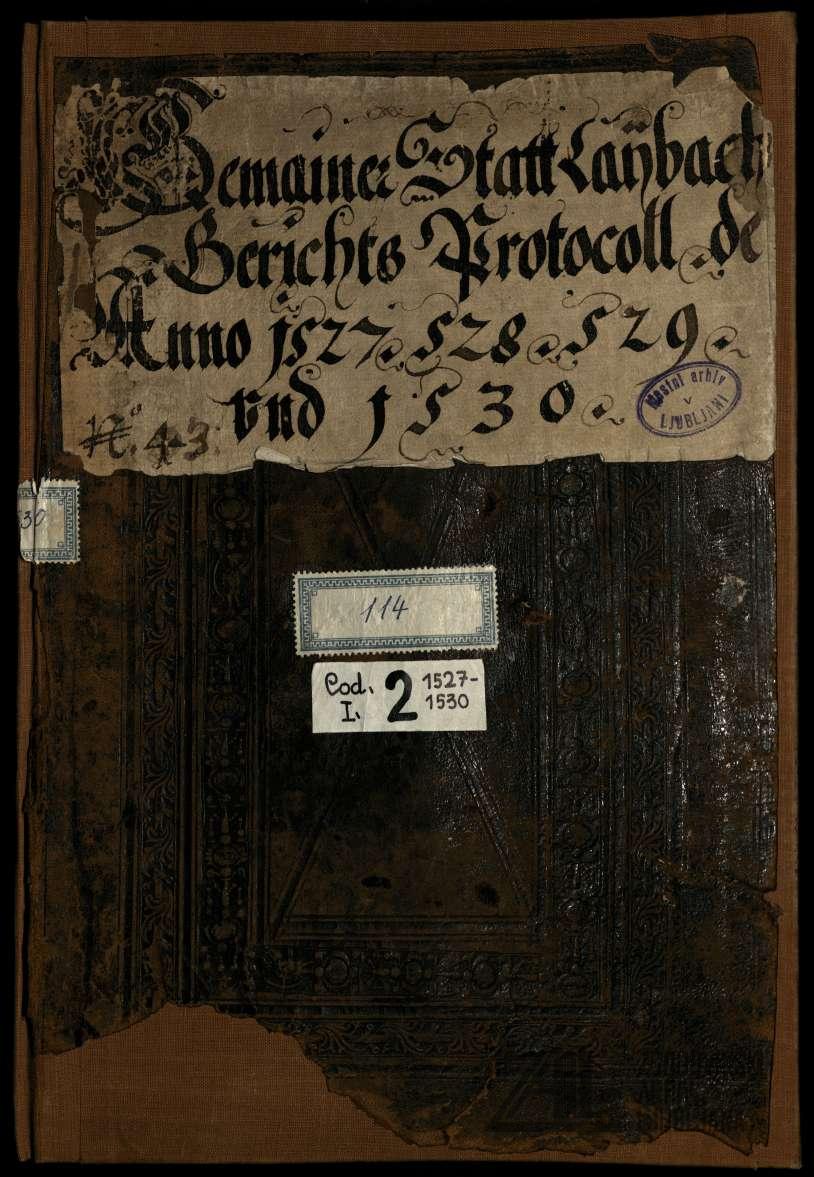 Gemainer Statt Laÿbach
Gerichts Protocoll de
Anno 1527. 528. 529.
vnd 1530.
No. 43.
Mestni arhiv
v
LJUBLJANI
30
114
Cod. I. 2 1527-1530
ZGODOVINSKI
ARHIV
LJUBLJANA